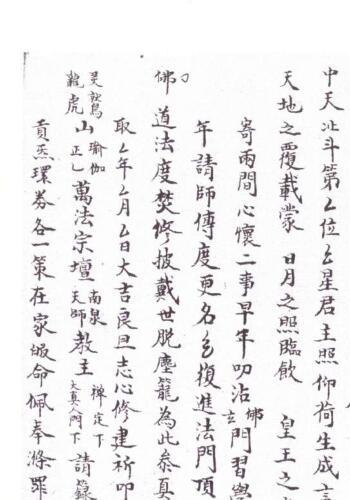 中天北斗第厶位厶星君主照仰荷生成言
天地之覆載蒙 日月之照臨飲 皇王之
寄兩間心懷二事早年叨沾佛玄門習學
年請師傳度更名厶復進法門頂
佛道法度焚修披戴世脫塵籠為此恭真
取厶年厶月厶日大吉良旦志心修建祈叩
灵鷲龍虎山瑜伽正乙萬法宗壇南泉天師教主禅定下大真人門下請籙
貢炁環券各一策在家皈命佩奉滌罪